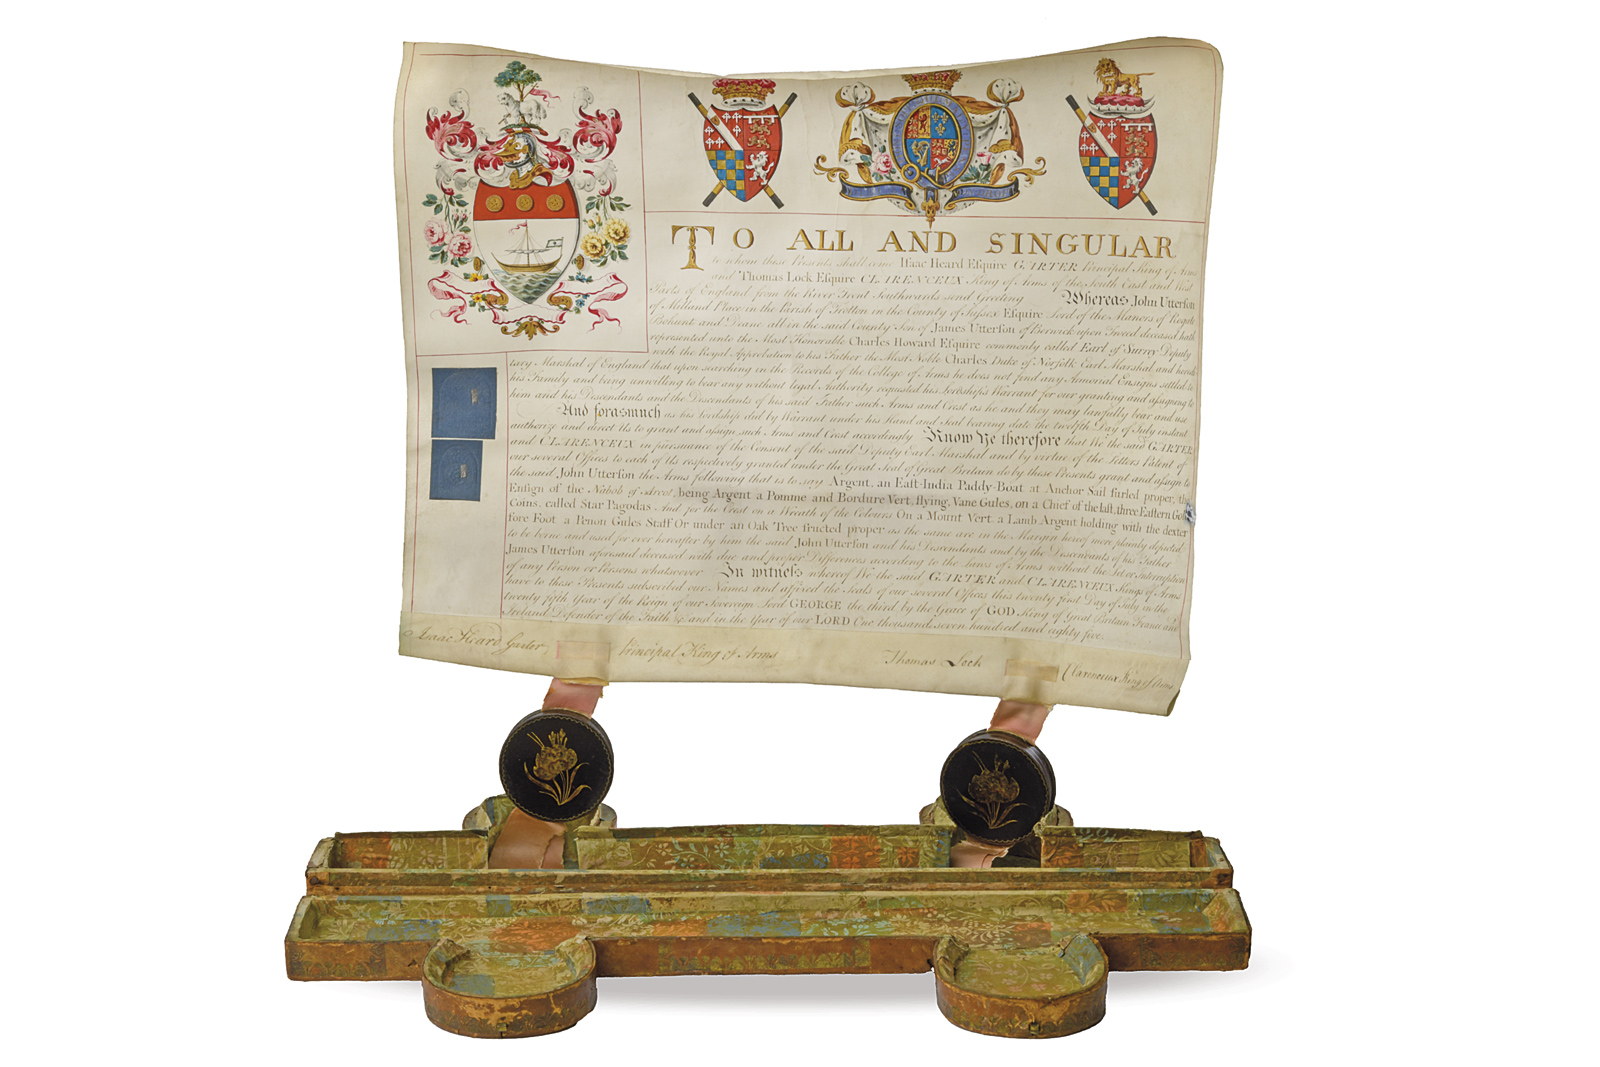 TO ALL AND SINGULAR
to whom these Presents shall come Isaac Heard Esquire GARTER Principal King of Arms
and Thomas Lock Esquire CLARENCEUX King of Arms of the South East and West
Parts of England from the River Trent Southwards send Greeting Whereas John Utterson
of Milland Place in the Parish of Trotton in the County of Sussex Esquire Lord of the Manors of
Bohunt and Deane all in the said County Son of James Utterson of Berwick upon Tweed deceased hath
represented unto the Most Honorable Charles Howard Esquire commonly called Earl of Surrey Deputy
with the Royal Approbation to his Father the Most Noble Charles Duke of Norfolk Earl Marshal and
tary Marshal of England that upon searching in the Records of the College of Arms he does not find any Armorial Ensigns settled to
his Family and being unwilling to bear any without legal Authority requested his Lordship's Warrant for our granting and assigning to
him and his Descendants and the Descendants of his said Father such Arms and Crest as he and they may lawfully bear and use
And forasmuch as his Lordship did by Warrant under his Hand and Seal bearing date the twelfth Day of July instant
authorize and direct Us to grant and assign such Arms and Crest accordingly Know Ye therefore that We the said GARTER
and CLARENCEUX in pursuance of the Consent of the said Deputy Earl Marshal and by virtue of the Letters Patent of
our several Offices to each of Us respectively granted under the Great Seal of Great Britain do by these Presents grant and assign to
the said John Utterson the Arms following that is to say Argent, an East-India Paddy-Boat at Anchor Sail furled proper, the
Ensign of the Nabob of Arcot, being Argent a Pomme and Bordure Vert, flying, Vane Gules, on a Chief of the last, three Eastern Gold
Coins, called Star Pagodas And for the Crest on a Wreath of the Colours On a Mount Vert a Lamb Argent holding with the dexter
fore Foot a Penon Gules Staff Or under an Oak Tree fructed proper as the same are in the Margin hereof more plainly depicted
to be borne and used for ever hereafter by him the said John Utterson and his Descendants and by the Descendants of his Father
James Utterson aforesaid deceased with due and proper Differences according to the Laws of Arms without the Let or Interruption
of any Person or Persons whatsoever In witness whereof We the said GARTER and CLARENCEUX Kings of Arms
have to these Presents subscribed our Names and affixed the Seals of our several Offices this twenty first Day of July in the
twenty fifth Year of the Reign of our Sovereign Lord GEORGE the third by the Grace of GOD King of Great Britain France and
Ireland Defender of the Faith &c and in the Year of our LORD One thousand seven hundred and eighty five.
Isaac Heard Garter Principal King of Arms Thomas Lock Clarenceux King of Arms